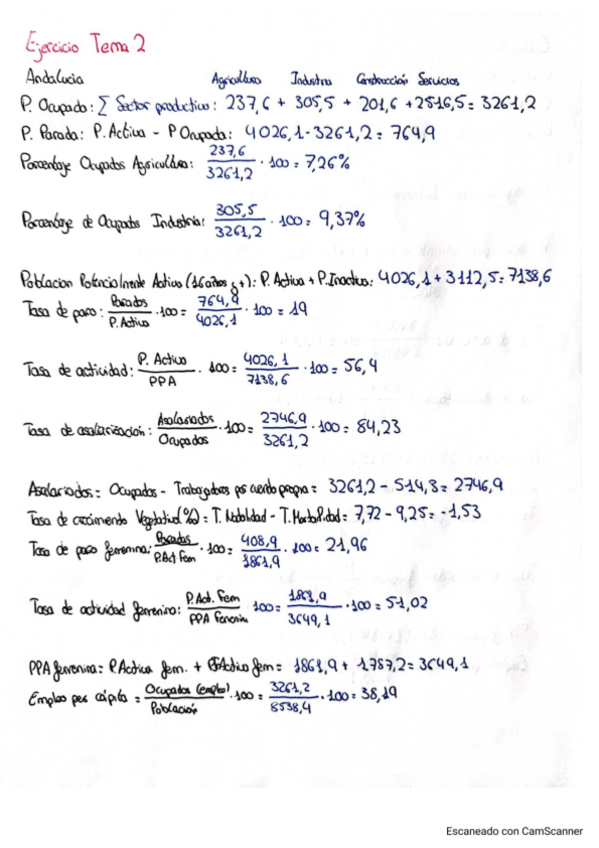 Ejercicio Tema 2
Andalucia Agricultura Industria Construcción Servicios
P. Ocupado: ∑ Sector productivo: 237,6 + 305,5 + 201,6 + 2516,5 = 3261,2
P. Parada: P. Activa - P Ocupada: 4026,1 - 3261,2 = 764,9
Porcentaje Ocupados Agricultura: 237,6 / 3261,2 · 100 = 7,26%
Porcentaje de Ocupados Industria: 305,5 / 3261,2 · 100 = 9,37%
Poblacion Potencialmente Activa (16 años y +): P. Activa + P. Inactiva: 4026,1 + 3112,5 = 7138,6
Tasa de paro: Parados / P. Activa · 100 = 764,9 / 4026,1 · 100 = 19
Tasa de actividad: P. Activa / PPA · 100 = 4026,1 / 7138,6 · 100 = 56,4
Tasa de asalarización: Asalariados / Ocupados · 100 = 2746,9 / 3261,2 · 100 = 84,23
Asalariados = Ocupados - Trabajadores por cuenta propia = 3261,2 - 514,3 = 2746,9
Tasa de crecimiento Vegetativo (‰) = T. Natalidad - T. Mortalidad = 7,72 - 9,25 = -1,53
Tasa de paro femenina: Paradas / P.Act Fem · 100 = 408,9 / 1861,9 · 100 = 21,96
Tasa de actividad femenina: P. Act. Fem / PPA Femenina · 100 = 1861,9 / 3649,1 · 100 = 51,02
PPA femenina: P. Activa fem. + fem = 1861,9 + 1787,2 = 3649,1
Empleo per cápita = Ocupados (empleo) / Población · 100 = 3261,2 / 8538,4 · 100 = 38,19
Escaneado con CamScanner